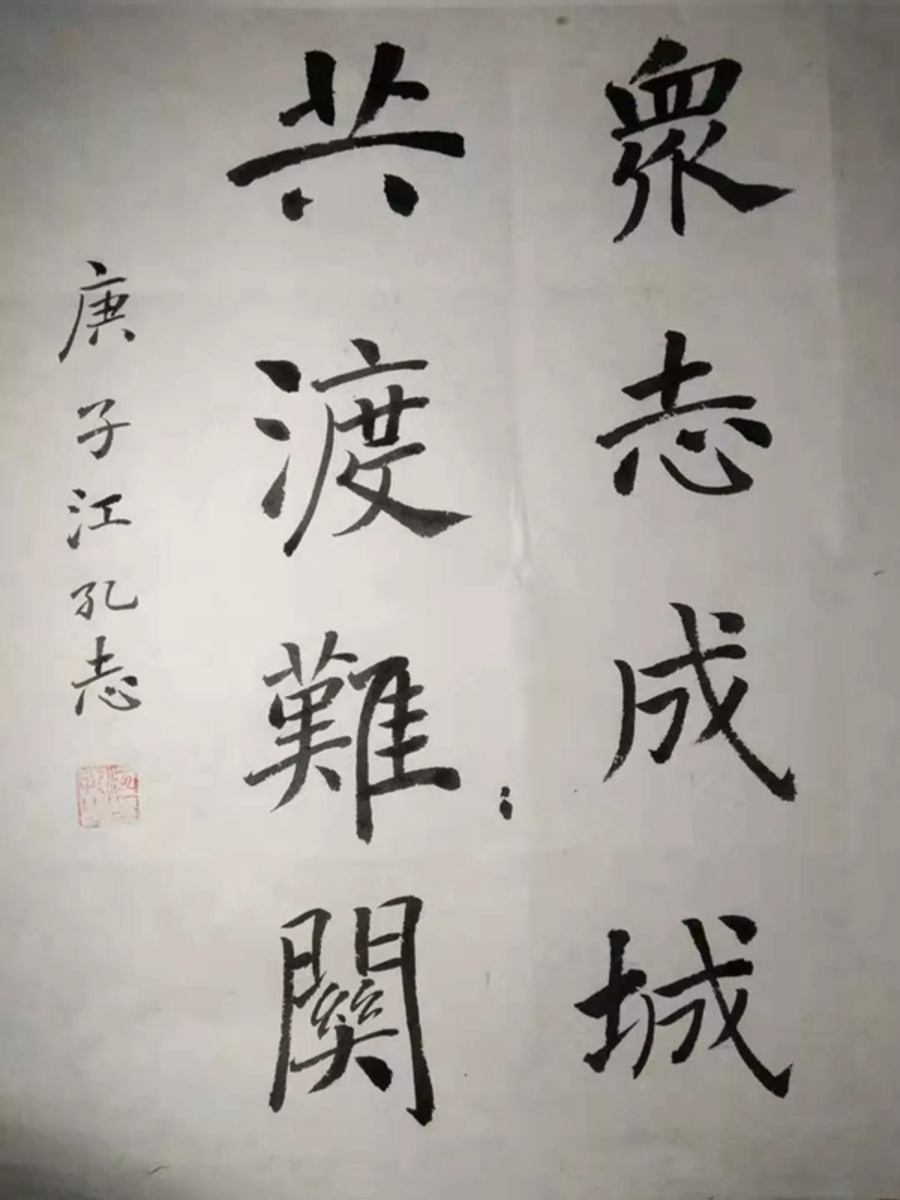 眾志成城
共渡難關
庚子江孔志